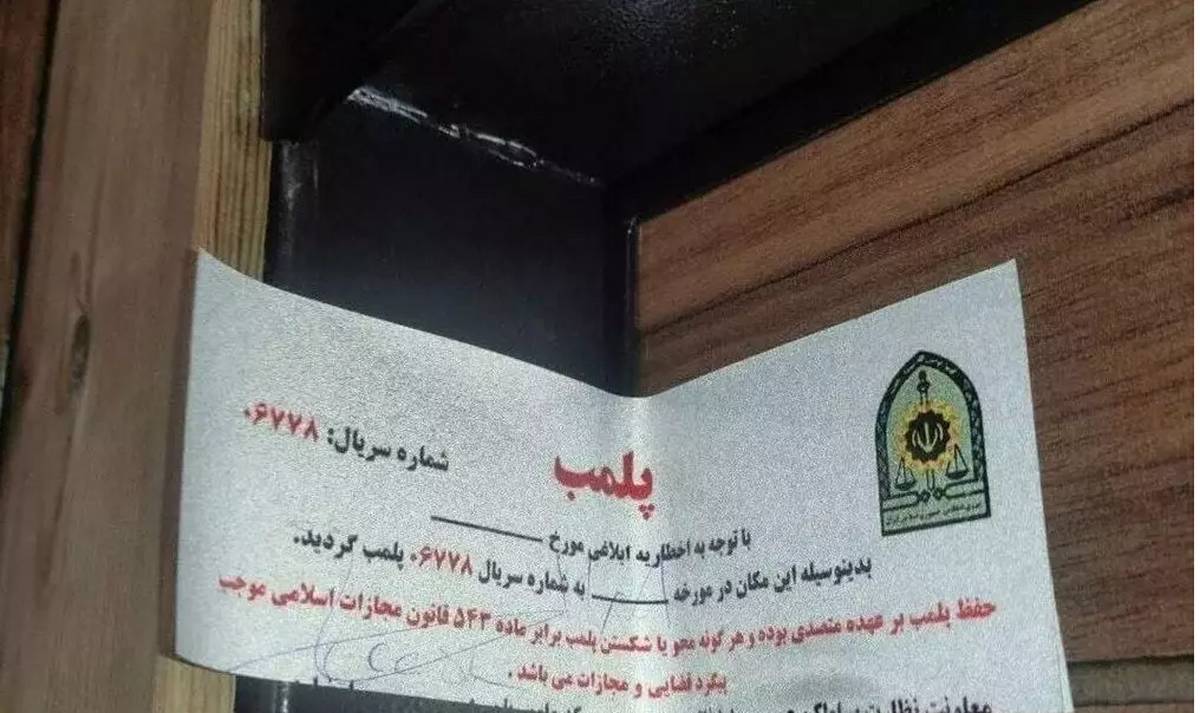 پلمب
شماره سریال: ۰۶۷۷۸
با توجه به اخطاریه ابلاغی مورخ
بدینوسیله این مکان در مورخه ______ به شماره سریال ۰۶۷۷۸ پلمب گردید.
حفظ پلمب بر عهده متصدی بوده و هر گونه محو یا شکستن پلمب برابر ماده ۵۴۳ قانون مجازات اسلامی موجب
پیگرد قضایی و مجازات می باشد .
معاونت نظارت بر اماکن